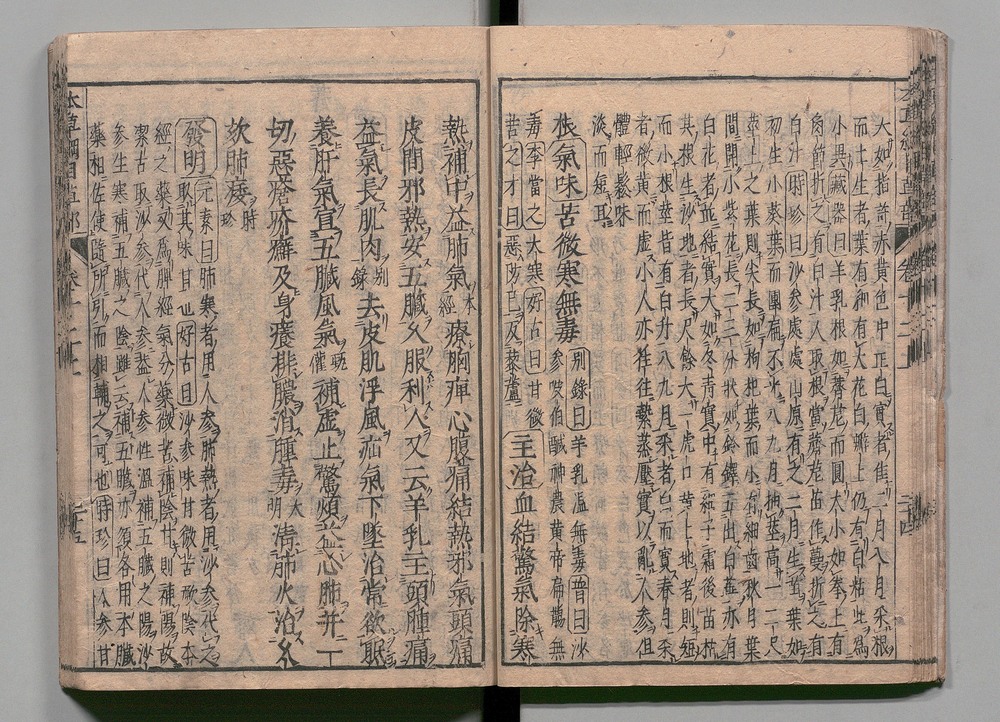 大如指許赤黃色中正白實者佳二月八月采根
而土生者葉有細有大花白瓣上仍有白粘此爲
小異藏器曰羊乳根如薺苨而圓大小如拳上有
角節折之有白汁人取根當薺苨苗作蔓折之有
白汁時珍曰沙參處處山原有之二月生苗葉如
初生小葵葉而團扁不光八九月抽莖高一二尺
莖上之葉則尖長如枸杞葉而小有細齒秋月葉
間開小紫花長二三分狀如鈴鐸五出白蕊亦有
白花者並結實大如冬青實中有細子霜後苗枯
其根生沙地者長尺餘大一虎口黃土地者則短
而小根莖皆有白汁八九月采者白而實春月采
者微黃而虛小人亦往往縶蒸壓實以亂人參但
體輕鬆味
淡而短耳
根氣味苦微寒無毒別錄曰羊乳溫無毒普曰沙
參岐伯鹹神農黃帝扁鵲無
毒李當之大寒好古曰甘微
苦之才曰惡防已反藜蘆
主治血結驚氣除寒
熱補中益肺氣本經療胸痺心腹痛結熱邪氣頭痛
皮間邪熱安五臟久服利人又云羊乳主頭腫痛
益氣長肌肉別錄去皮肌浮風疝氣下墜治常欲眠
養肝氣宣五臟風氣甄權補虛止驚煩益心肺并一
切惡瘡疥癬及身癢排膿消腫毒大明清肺火治久
欬肺痿時珍
發明元素曰肺寒者用人參肺熱者用沙參代之
取其味甘也好古曰沙參味甘微苦厥陰本
經之藥又爲脾經氣分藥微苦補陰甘則補陽故
潔古取沙參代人參蓋人參性溫補五臟之陽沙
參性寒補五臟之陰雖云補五臟亦須各用本臟
藥相佐使隨所引而相輔之可也時珍曰人參甘